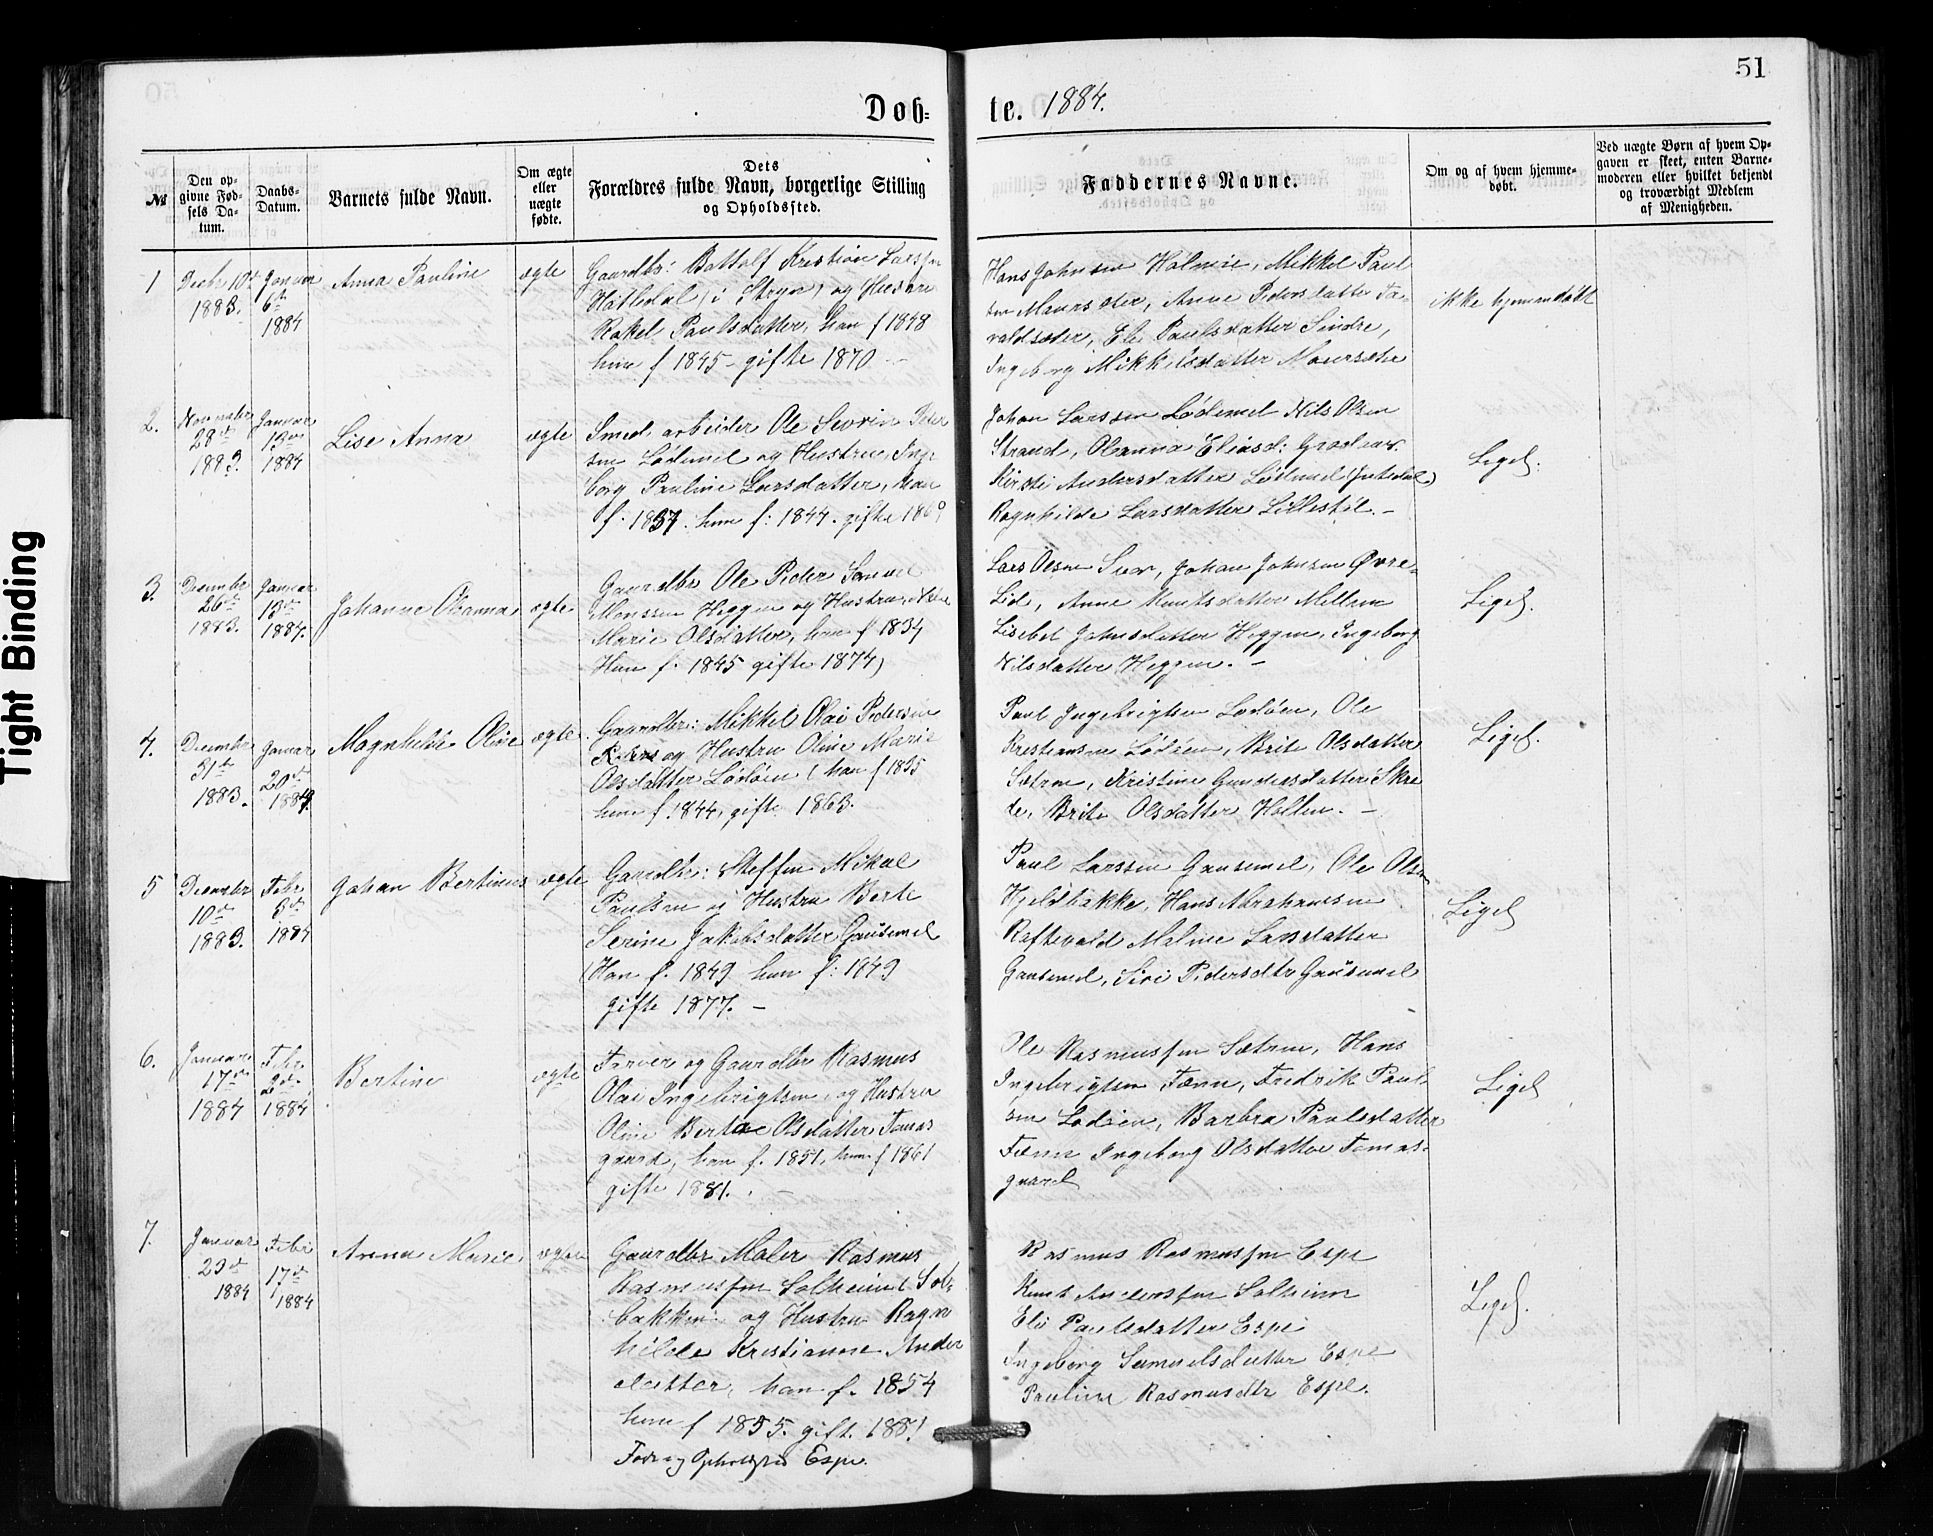 51
Døb-
te. 1884.
№
Den op-
givne Fød-
sels Da-
tum.
Daabs-
Datum.
Barnets fulde Navn.
Om ægte
eller
uægte
fødte.
Dets
Forældres fulde Navn, borgerlige Stilling
og Opholdssted.
Faddernes Navne.
Om og af hvem hjemme-
døbt.
Ved uægte Børn af hvem Op-
gaven er skeet, enten Barne-
moderen eller hvilket bekjendt
og troværdigt Medlem
af Menigheden.
1
Decbr 10de
1883.
Januar
6te
1884
Anna Pauline
ægte
Gaardbr: Kristian
(i Stryn) og Hustru
Rakel Paulsdatter, han f 1848
hun f 1845 - gifte 1870 -
Hans Johnsen Holmøie, Mikkel Paul
sen Maurseter, Anne Pedersdatter
Eli Paulsdatter Sindre,
Ingeborg Mikkelsdatter Maurseter
ikke hjemmedøbt
2.
Novembr
28de
1883.
Januar
13de
1884
Lise Anna
ægte
Smed, arbeider Ole Sevrin Peder
sen Lødemel og Hustru, Inge
borg Pauline Larsdatter, han
f. 1837. hun f: 1844. gifte
Johan Larssen Lødemel Nils Olsen
Strand, Olianna Eliasd:
Kirsti Andersdatter Lødemel
Ragnhilde Larsdatter Lillestøl. -
Liges.
3.
Decembr
26de
1883.
Januar
13de
1884.
Johanne Olianna
ægte
Gaardbr Ole Peder Samuel
Monssen Heggen og Hustru,
Marie Olsdatter, han f 1834
Hun f. 1845 gifte 1874)
Lars Olsen Johan Johnsen Øvre-
Lid, Anne Knutsdatter Mellem
Lisebet Johnsdatter Heggen, Ingeborg
Nilsdatter Heggen. -
Liges.
4.
Decembr
31te
1883.
Januar
20de
1884.
Magnhilde Oline
ægte
Gaardbr: Mikkel Olai Pedersen
og Hustru Oline Marie
Olsdatter Lødøen (han f 1835
hun f. 1844, gifte 1863.
Paul Ingebrigtsen Lodøen, Ole
Kristiansen Lødøen, Brite Olsdatter
Sætren, Kristine Gundersdatter Skre
de, Brite Olsdatter Hollen. -
Liges.
5
Decembr
10de
1883.
Febr
3de
1884
Johan Bertinus
ægte
Gaardbr: Steffen Mikal
Paulsen og Hustru Berte
Serine Jakobsdatter Gausemel
(Han f. 1849 hun f: 1849
gifte 1877. -
Paul Larssen Gausemel, Ole Olsen
Hjeldhakke, Hans Abrahamsen
Raftevold Maline Larsdatter
Gausemel, Siri Pedersdtr Gausemel
Liges
6.
Januar
17de
1884
Febr
1884
Bertine
ægte
Farver og Gaardbr Rasmus
Olai Ingebrigtsen, og Hustru
Oline Bertae Olsdatter Tomas
gaard, han f. 1851, hun f 1861
gifte 1881. -
Ole Rasmussen Sætren, Hans
Ingebrigtsen Tænn, Fredrik Paul
sen Lødøen, Barbra Paulsdatter
Tænn Ingeborg Olsdatter Tomas-
gaard
Liges
7.
Januar
1884
Febr
17de
1884
Anna Marie
ægte
Gaardbr Maler Rasmus
Rasmussen Solheim Sol-
bakken og Hustru Ragn
hilde Kristianne Anders
datter, han f. 1854
hun f 1855. gift. 1881
Føde og Opholdssted Espe.
Rasmus Rasmussen Espe
Knut Anderssen Solheim
Eli Paulsdatter Espe
Ingeborg Samuelsdatter Espe
Pauline Rasmusdtr Espe.
Liges.
Tight Binding